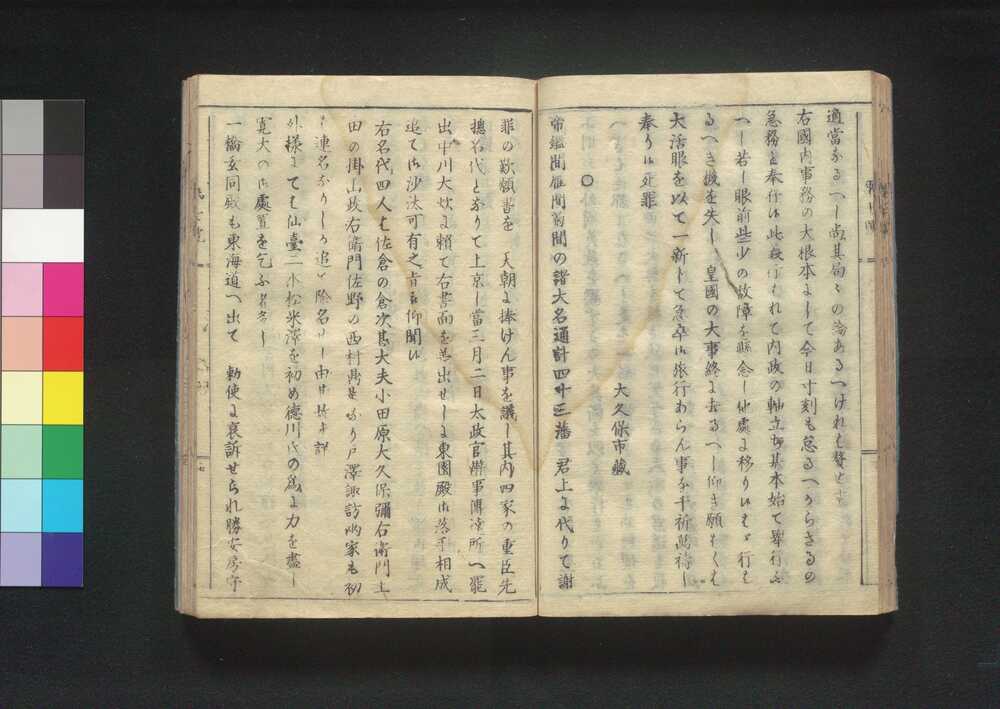 適當なるへし尚其局々の論あるへけれは贅せす
右國内事務の大根本にして今日寸刻も怠るへからさるの
急務と奉存候此義行はれて内政の軸立ち基本始て擧行ふ
へし若し眼前些少の故障を懸念し他處に移り候はゞ行は
るへき機を失し　皇國の大事終に去るへし仰き願わくは
大活眼を以て一新して急卒御旅行あらん事を千祈萬祷し
奉り候死罪
大久保市藏
○
帝鑑間雁間菊間の諸大名通計四十三藩　君上に代りて謝
罪の歎願書を　天朝に捧けん事を議し其内四家の重臣先
摠名代となりて上京し當三月二日太政官辨事傳達所へ罷
出中川大炊に頼て右書面を差出せしに東園殿御落手相成
追て御沙汰可有之旨被仰聞候
右名代四人は佐倉の倉次甚大夫小田原大久保彌右衛門上
田の掛山政右衛門佐野の西村なり戸澤諏訪両家も初
連名なりしか追て除名せし由
外様にても仙臺二本松米澤を初め徳川氏の為に力を盡し
寛大の御處置を乞ふ者多し
一橋玄同殿も東海道へ出て　勅使に哀訴せられ勝安房守